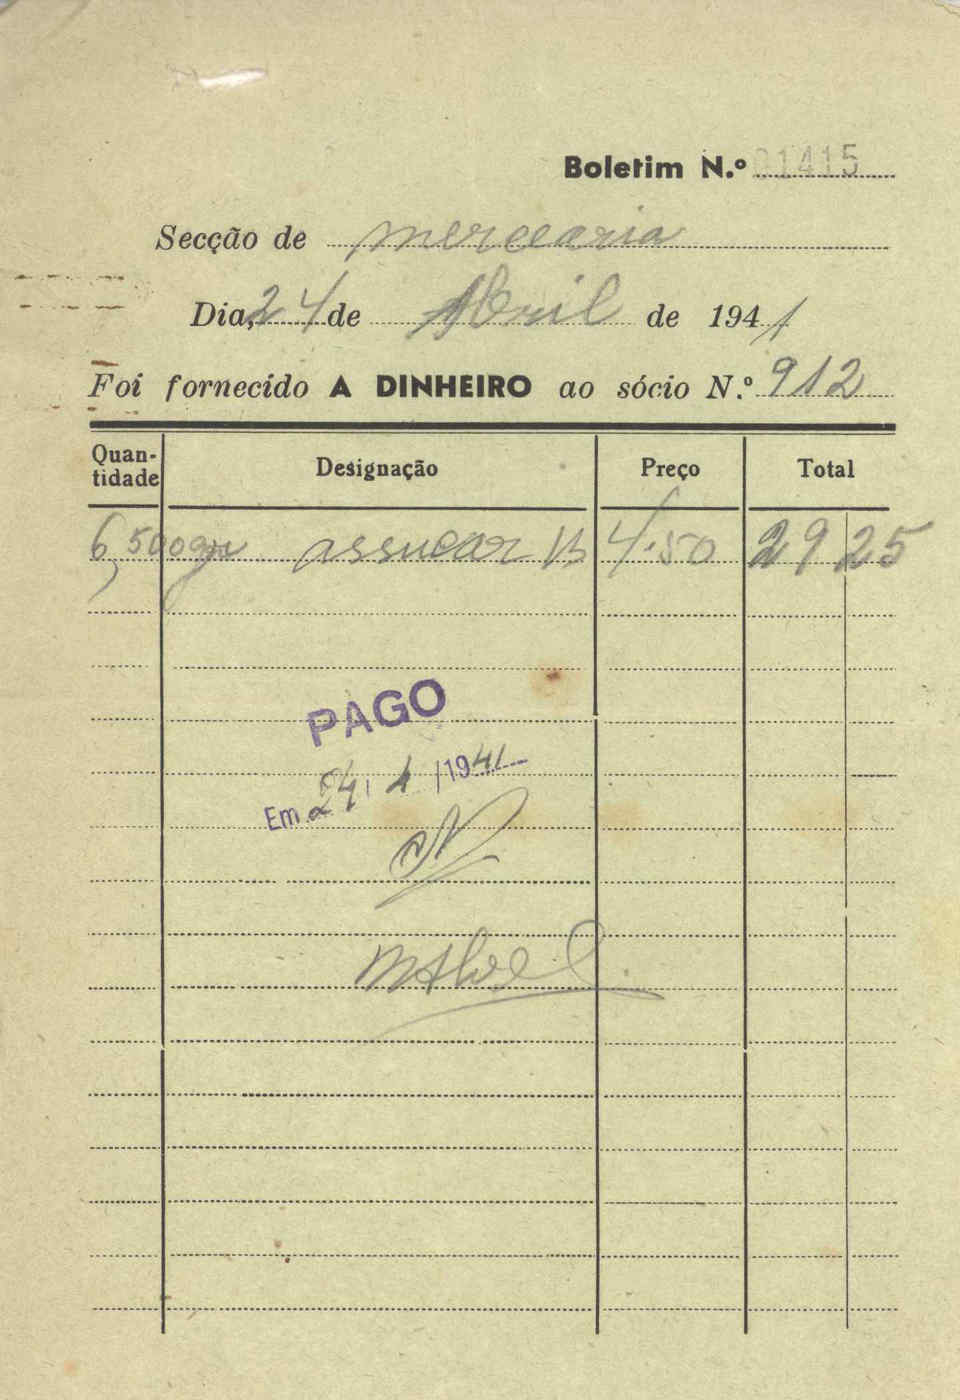 Boletim N.º 01415
Secção de mercearia
Dia, 24 de Abril de 1941
Foi fornecido A DINHEIRO ao sócio N.º 912
Quan-
tidade Designação Preço Total
6,500gr assucar B 4.50 29 25
PAGO
Em 24/4/1941